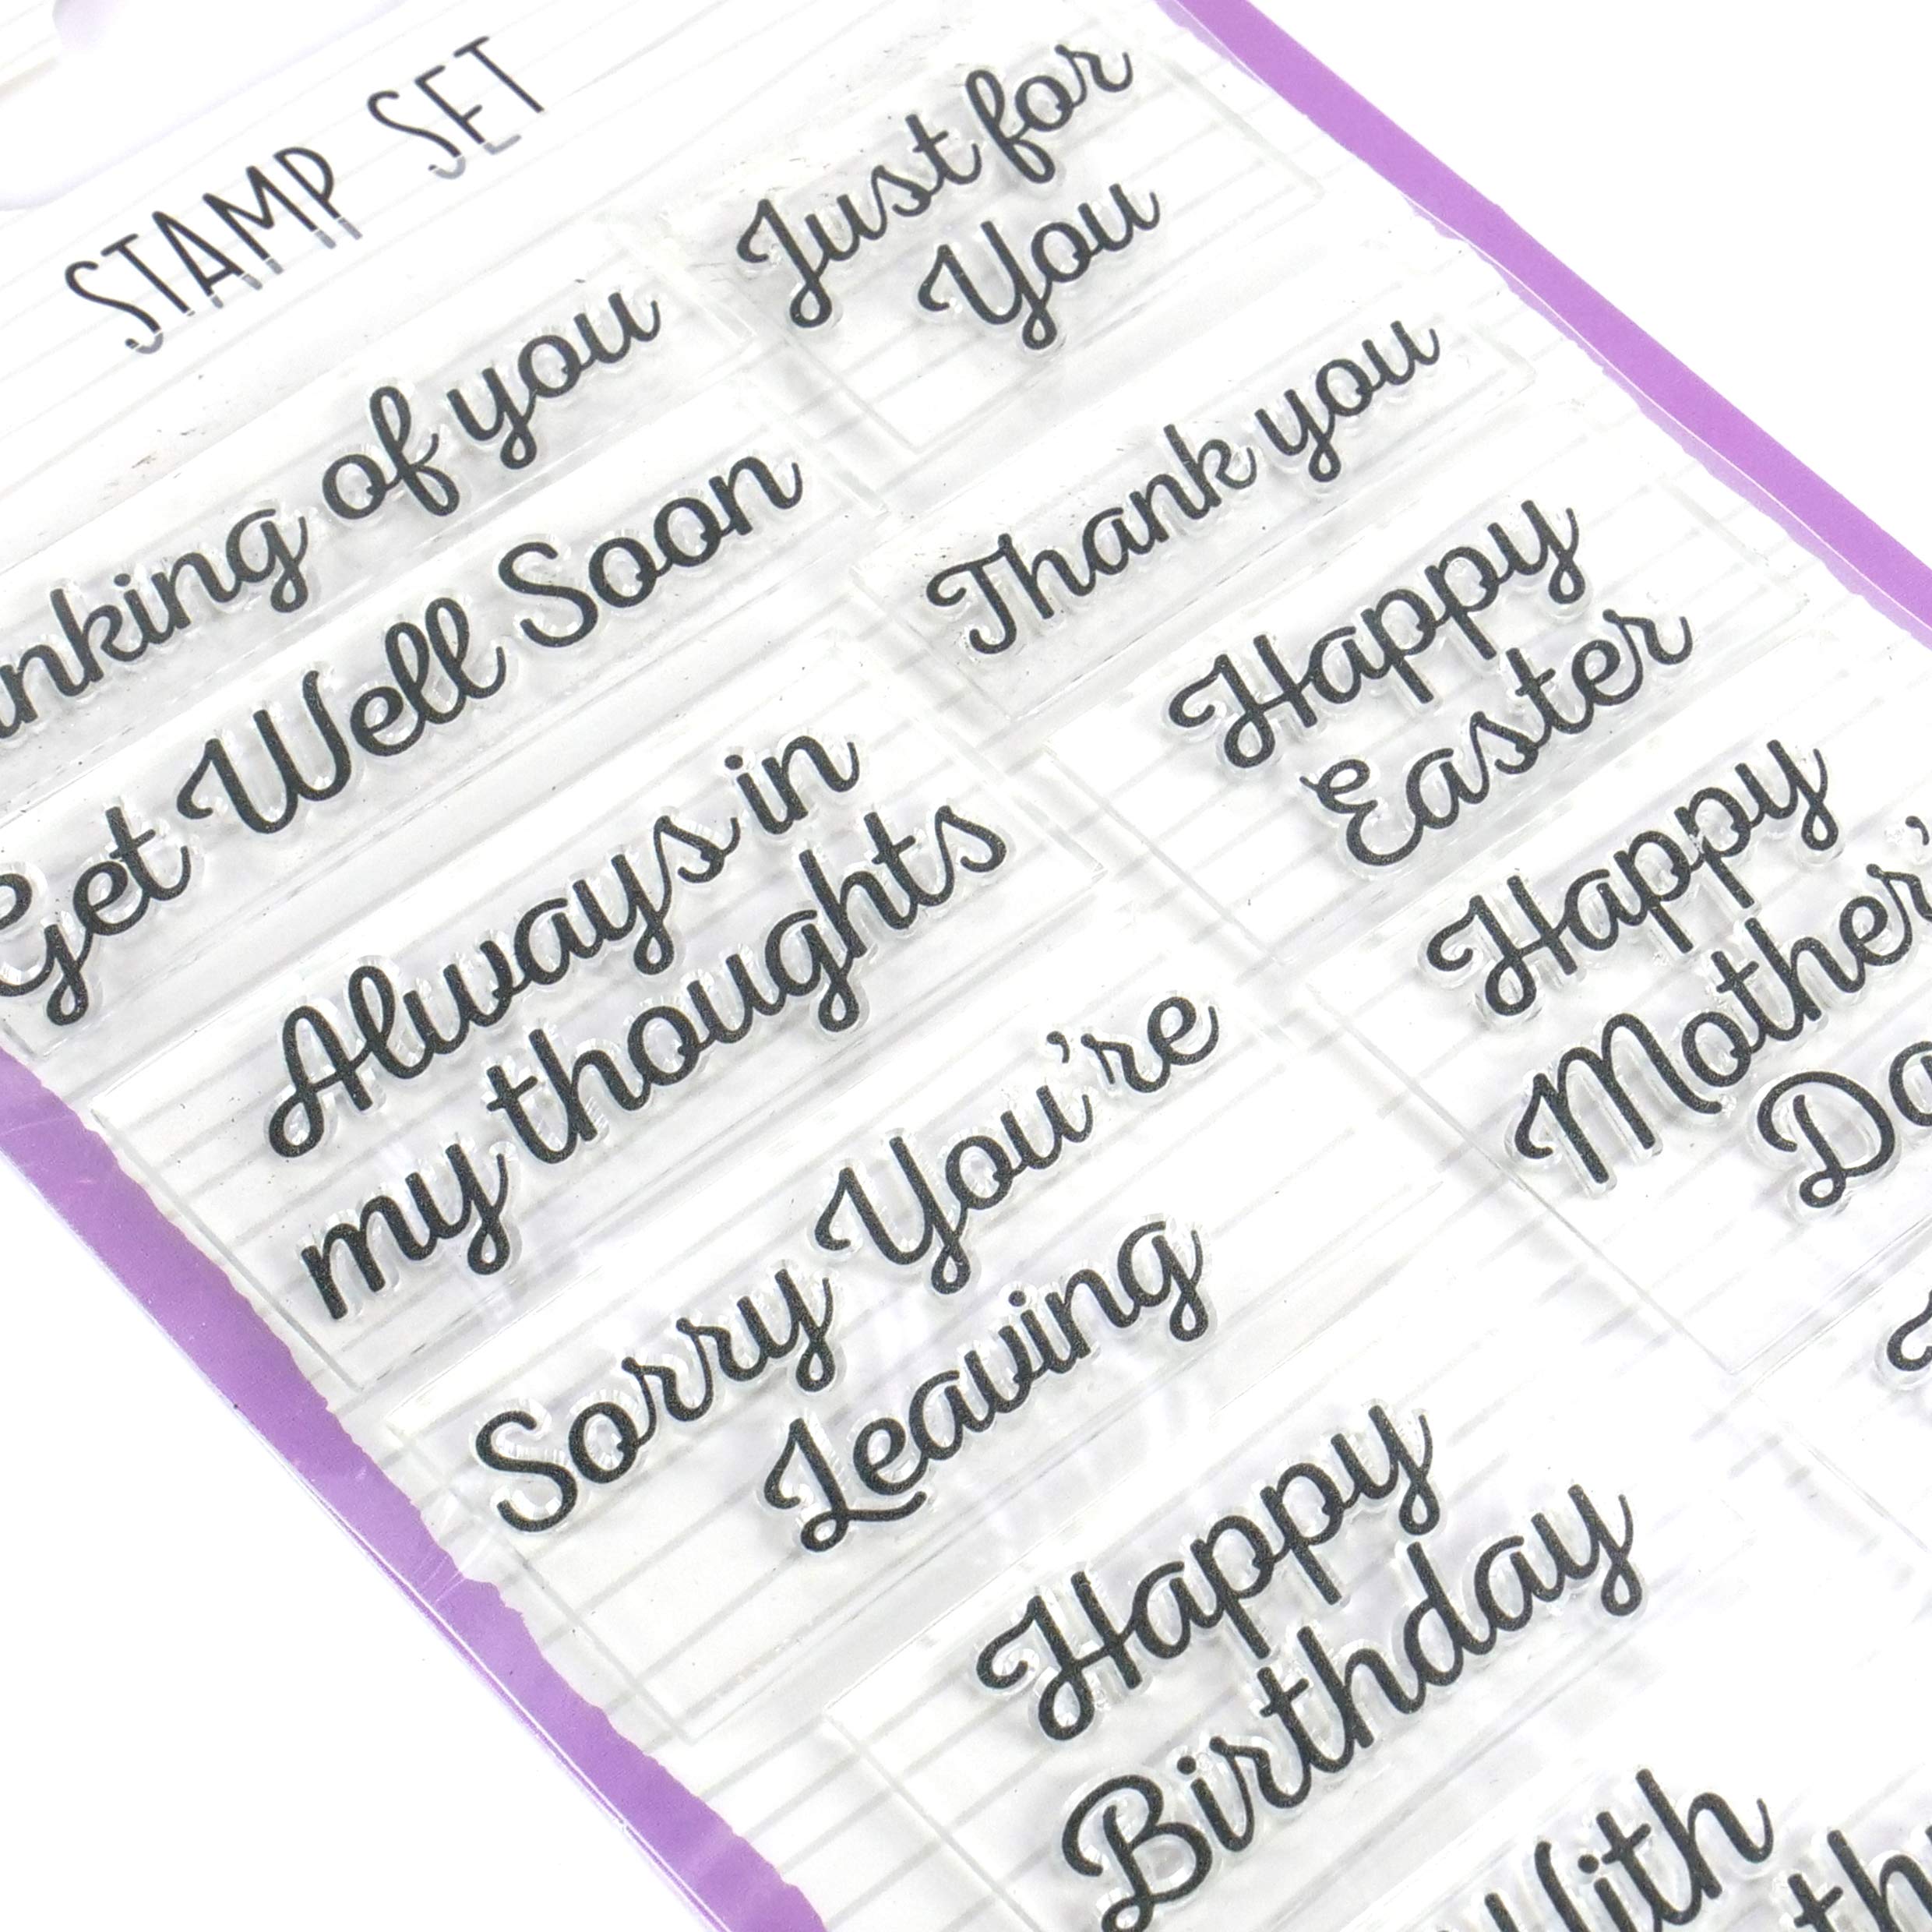 STAMP SET
Just for
You
nking of you
Thank you
Get Well Soon
Happy
Easter
Always in
my thoughts
Happy
Mother'
Da
Sorry You're
Leaving
Happy
Birthday
With
th